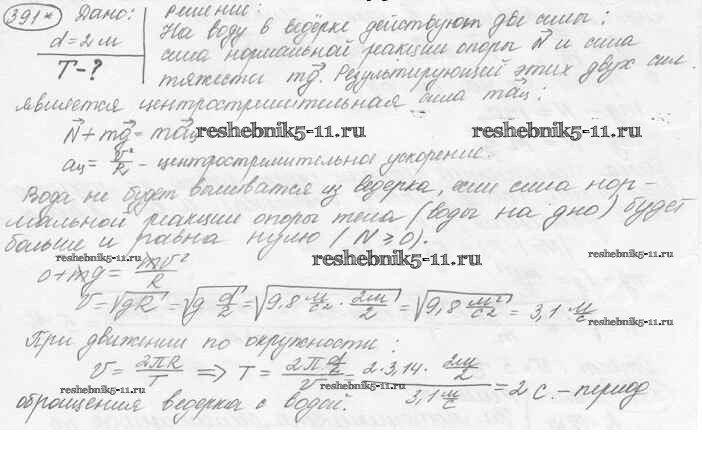 391* Дано: Решение:
d = 2 м На воду в ведёрке действуют две силы:
T - ? сила нормальной реакции опоры N⃗ и сила
тяжести mg⃗. Результирующей этих двух сил
является центростремительная сила ma⃗ц:
N⃗ + mg⃗ = ma⃗ц reshebnik5-11.ru reshebnik5-11.ru
aц = v²/R - центростремительное ускорение.
Вода не будет выливатся из ведерка, если сила нор-
мальной реакции опоры тела (воды на дно) будет
больше и равна нулю (N ≥ 0).
reshebnik5-11.ru reshebnik5-11.ru reshebnik5-11.ru
0 + mg = mv²/R
v = √gR = √g d/2 = √9,8 м/с² · 2м/2 = √9,8 м²/с² = 3,1 м/с
reshebnik5-11.ru
При движении по окружности:
v = 2πR/T ⇒ T = 2π d/2 / v = 2·3,14· 2м/2 / 3,1 м/с = 2 с. - период
reshebnik5-11.ru reshebnik5-11.ru
обращения ведерка с водой. reshebnik5-11.ru